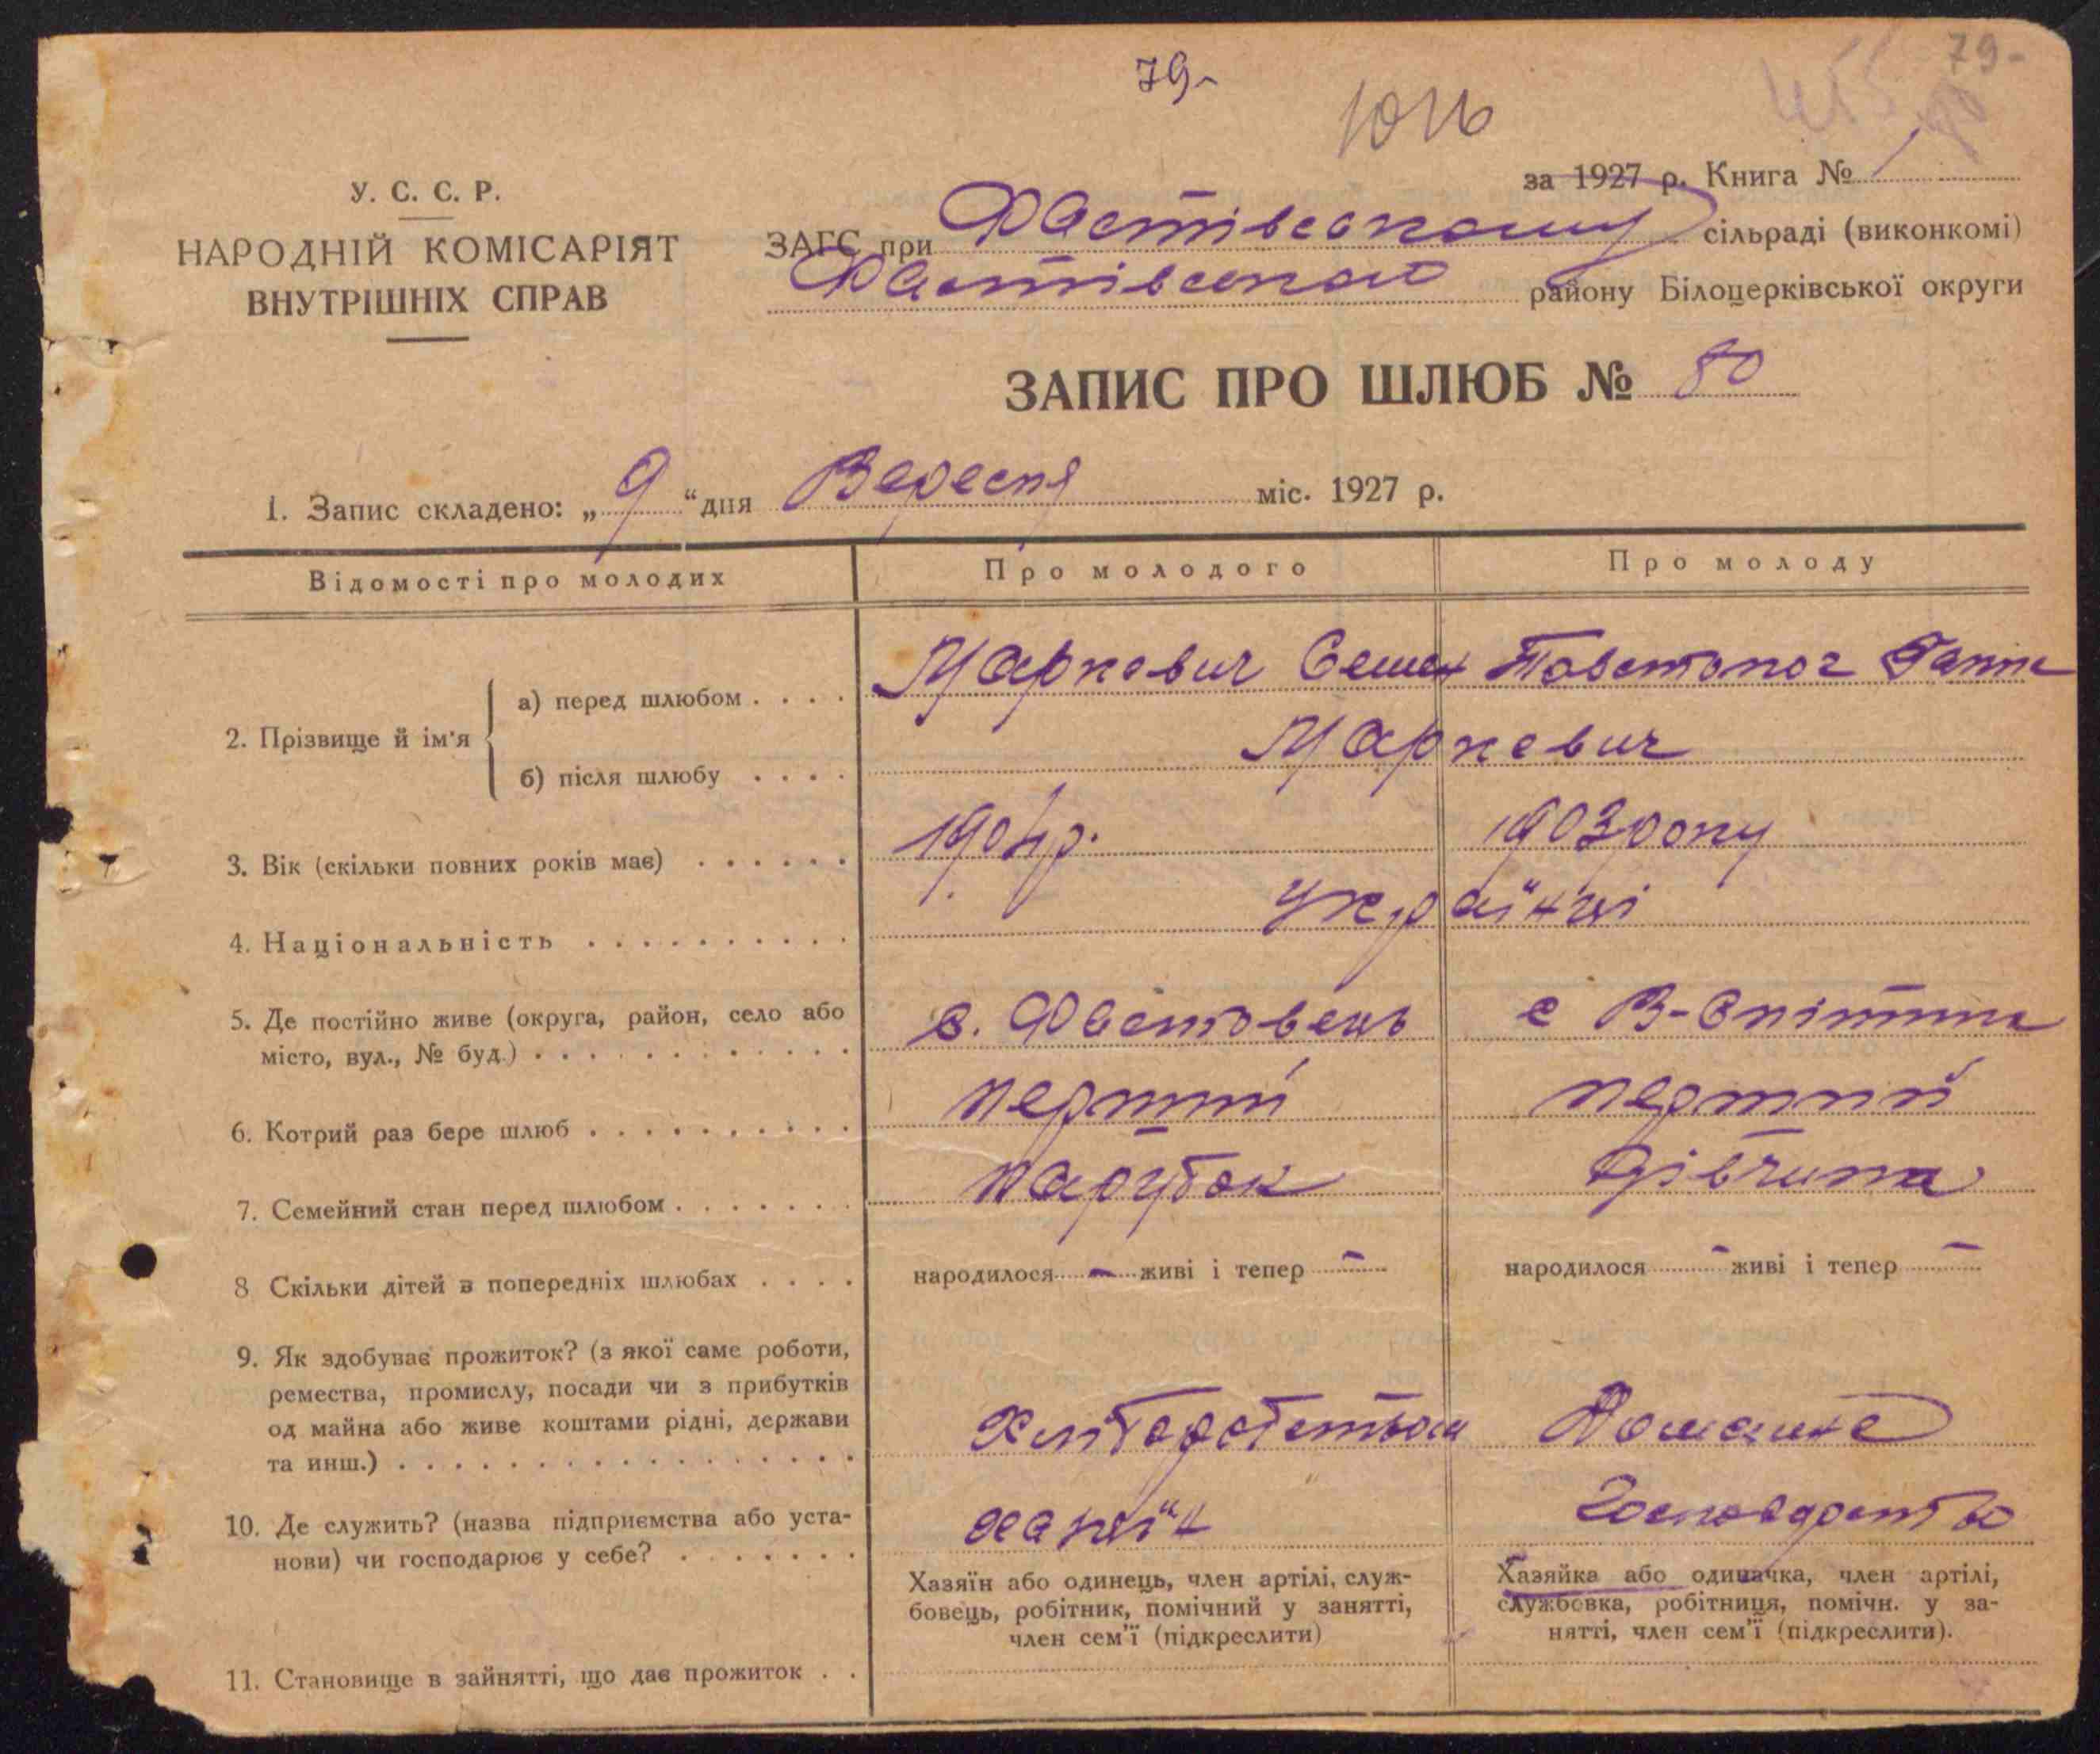 79-
79-
У. С. С. Р.
НАРОДНІЙ КОМІСАРІЯТ
ВНУТРІШНІХ СПРАВ
за 1927 р. Книга № 1
ЗАГС при Фастівському сільраді (виконкомі)
Фастівського району Білоцерківської округи
ЗАПИС ПРО ШЛЮБ № 80
1. Запис складено: „9“ дня Вересня міс. 1927 р.
Відомості про молодих Про молодого Про молоду
2. Прізвище й ім'я
а) перед шлюбом . . . . Маркевич Семен Товстоног Ганна
б) після шлюбу . . . . Маркевич
3. Вік (скільки повних років має) . . . . . . 1904р. 1903 року
4. Національність . . . . . . . . . . Українці
5. Де постійно живе (округа, район, село або
місто, вул., № буд.) . . . . . . . . . . . . с. Фастовець с В-Снітинка
6. Котрий раз бере шлюб . . . . . . . . . . перший перший
7. Семейний стан перед шлюбом . . . . . . . парубок дівчина
8 Скільки дітей з попередніх шлюбах . . . . народилося - живі і тепер - народилося - живі і тепер -
9. Як здобуває прожиток? (з якої саме роботи,
ремества, промислу, посади чи з прибутків
од майна або живе коштами рідні, держави
та инш.) . . . . . . . . . . . . . . . . . Хліборобством Домашнє
10. Де служить? (назва підприємства або уста-
нови) чи господарює у себе? . . . . . . . хазяїн Господарство
Хазяїн або одинець, член артілі, служ-
бовець, робітник, помічний у занятті,
член сем'ї (підкреслити)
Хазяйка або одиначка, член артілі,
службовка, робітниця, помічн. у за-
нятті, член сем'ї (підкреслити).
11. Становище в зайнятті, що дає прожиток . .